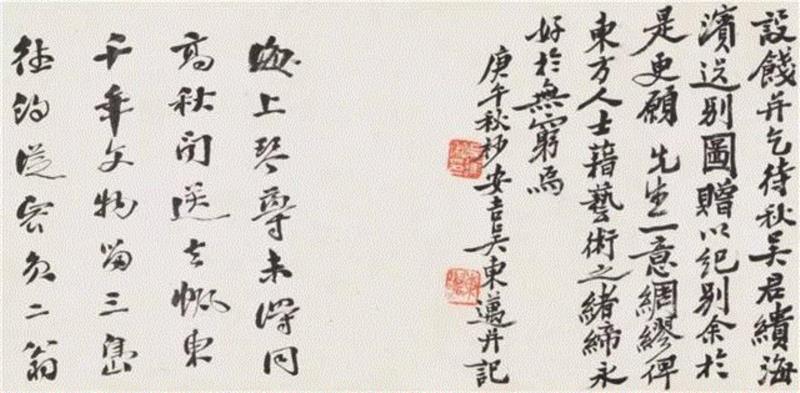 設餞并乞待秋吳君繢海
濱送别圖贈以紀别余於
是更願 先生一意綢繆俾
東方人士藉藝術之緒締永
好於無窮焉
庚午秋杪安吉吳東邁并記
海上琴尊未得同
高秋送去帆東
千年文物留三島
往約從容負二翁